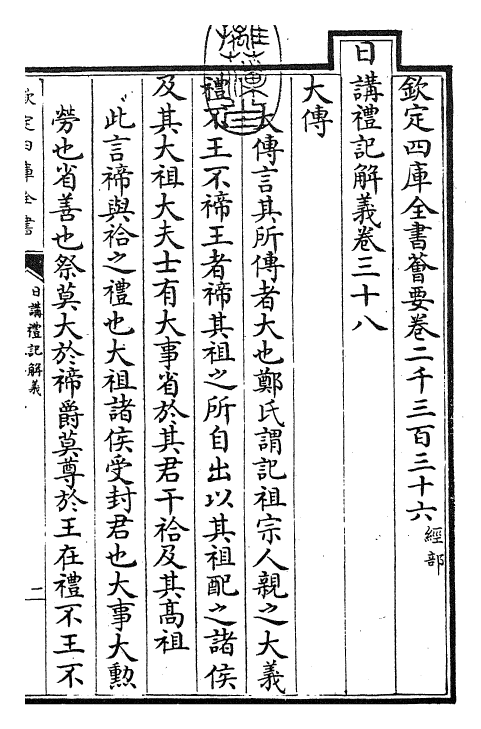 欽定四庫全書薈要卷二千三百三十六 經部
日講禮記解義卷三十八
大傳
大傳言其所傳者大也鄭氏謂記祖宗人親之大義
禮不王不禘王者禘其祖之所自出以其祖配之諸侯
及其大祖大夫士有大事省於其君干祫及其髙祖
此言禘與祫之禮也大祖諸侯受封君也大事大勲
勞也省善也祭莫大於禘爵莫尊於王在禮不王不
欽定四庫全書
日講禮記解義
二